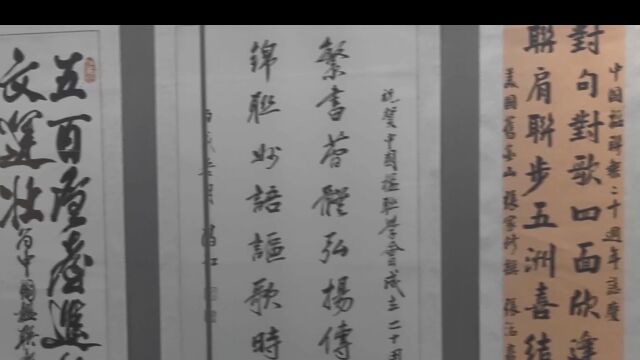 中國楹聯學二十週年誌慶
對句對歌四面欣逢
聯肩聯步五洲喜結
美國舊金山 張家修撰 張
祝賀中國楹聯學會成立二十周
繁書薈體弘揚傳
錦聯妙語謳歌時
丙戌
五百臺進
文運壯
中國楹聯